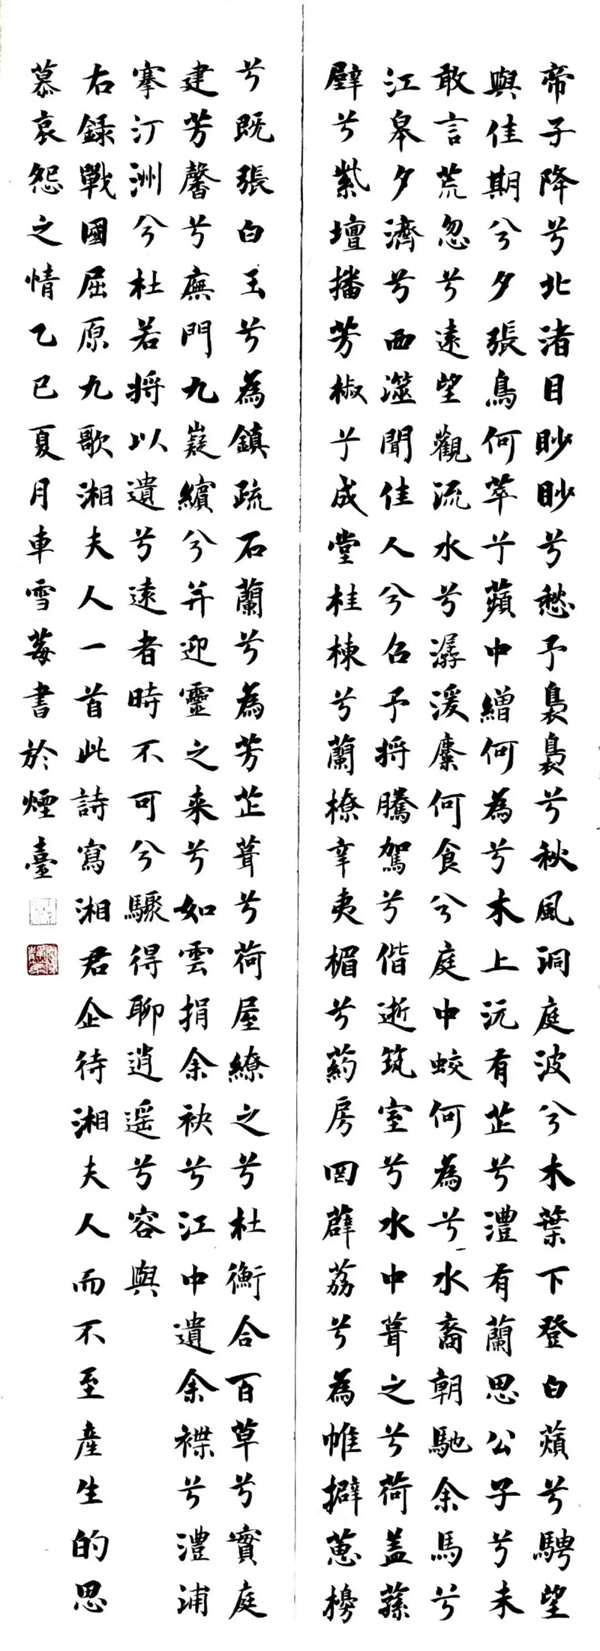 帝子降兮北渚目眇眇兮愁予褭褭兮秋風洞庭波兮木葉下登白薠兮騁望
與佳期兮夕張鳥何萃兮蘋中繒何為兮木上沅有芷兮澧有蘭思公子兮未
敢言荒忽兮遠望觀流水兮潺湲麋何食兮庭中蛟何為兮水裔朝馳余馬兮
江皋夕濟兮西澨聞佳人兮召予將騰駕兮偕逝筑室兮水中葺之兮荷蓋蓀
壁兮紫壇播芳椒兮成堂桂棟兮蘭橑辛夷楣兮葯房罔薜荔兮為帷擗蕙櫋
兮既張白玉兮為鎮疏石蘭兮為芳芷葺兮荷屋繚之兮杜衡合百草兮實庭
建芳馨兮廡門九嶷繽兮并迎靈之来兮如雲捐余袂兮江中遺余褋兮澧浦
搴汀洲兮杜若將以遺兮遠者時不可兮驟得聊逍遥兮容與
右録戰國屈原九歌湘夫人一首此詩寫湘君企待湘夫人而不至産生的思
慕哀怨之情乙巳夏月車雪莓書於煙臺